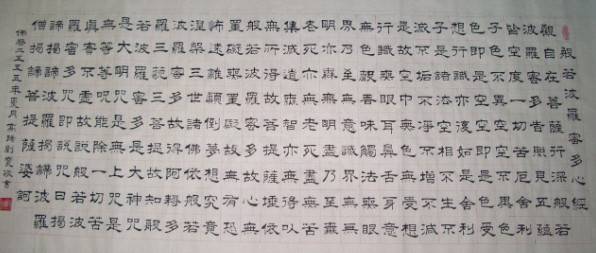 般若波羅蜜多心經
觀自在菩薩行深般若
波羅蜜多時照見五蘊
皆空度一切苦厄舍利
子色不異空空不異色
色即是空空即是色受
想行識亦復如是舍利
子是諸法空相不生不
滅不垢不淨不增不減
是故空中無色無受想
行識無眼耳鼻舌身意
無色聲香味觸法無眼
界乃至無意識界無無
明亦無無明盡乃至無
老死亦無老死盡無苦
集滅道無智亦無得以
無所得故菩提薩埵依
般若波羅蜜多故心無
罣礙無罣礙故無有恐
怖遠離顛倒夢想究竟
涅槃三世諸佛依般若
波羅蜜多故得阿耨多
羅三藐三菩提故知般
若波羅蜜多是大神咒
是大明咒是無上咒是
無等等咒能除一切苦
真實不虛故說般若波
羅蜜多咒即說咒曰揭
諦揭諦波羅揭諦波羅
僧揭諦菩提薩婆訶
佛曆二五五五年夏月 劉 書